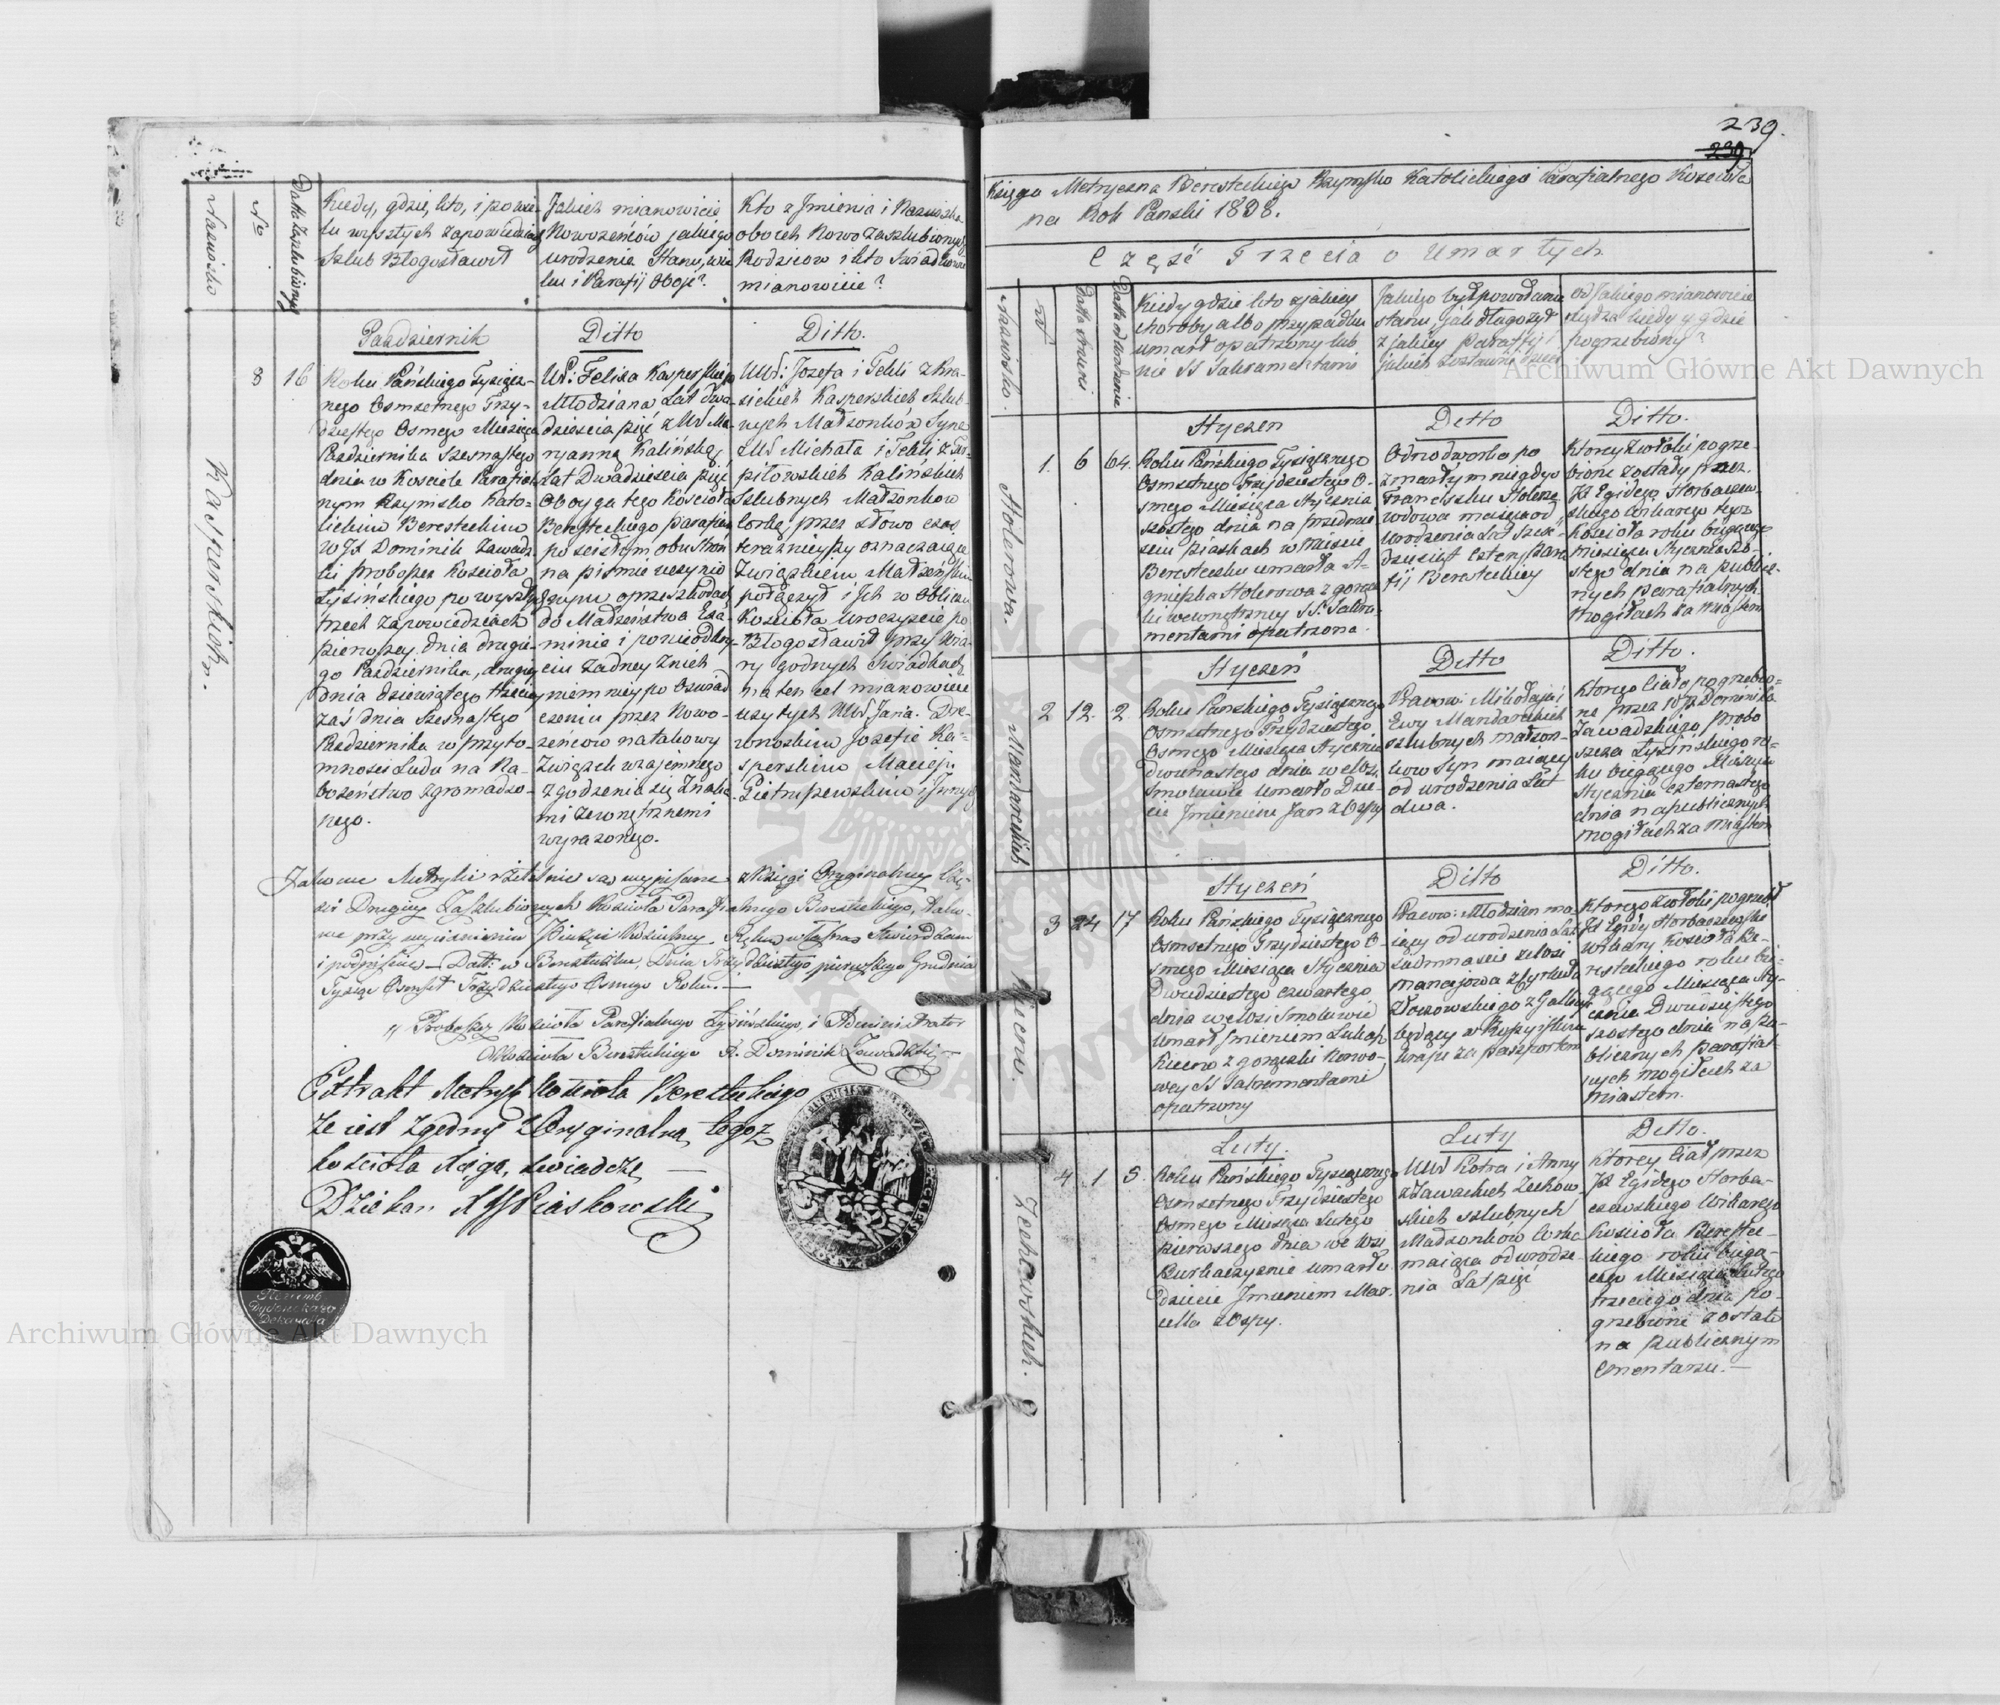 239.
239
Nazwisko
No
Datta Zaślubionych
Kiedy, gdzie, kto, i po wie-
lu wyszłych zapowiedziach
Szlub Błogosławił
Jakich mianowicie
Nowożeńców jakiego
urodzenia Stanu, wie
ku i Parafij Oboje?
Kto z Jmienia i Nazwiska
oboich Nowozaszlubionych
Rodzicow i kto Swiadkowie
mianowicie?
Pazdziernik
Ditto
Ditto.
8
16
Kasperskich.
Roku Pańskiego Tysiącz-
nego Osmsetnego Trzy-
dziestego Osmego Miesiąca
Pazdziernika Szesnastego
dnia w Kosciele Parafial
nym Rzymsko Kato-
lickim Beresteckim
WJX Dominik Zawadz
ki proboszcz Kościoła
Łysińskiego po wyszłych
trzech zapowiedziach
pierwszey dnia drugie-
go Pazdziernika, drugiey
dnia dziewiątego trzeciey
zaś dnia Szesnastego
Pazdziernika w przyto-
mnosci Ludu na Na-
bożeństwo zgromadzo-
nego.
UP: Felixa Kasperskiego
Młodziana Lat Dwa-
dziescia pięć z UW Ma-
ryanną Kalińską,
Lat Dwadziescia pięć
Oboyga tego Kościoła
Beresteckiego parafian
po scisłym obustron
na pismie uczynio
nym o przeszkodach
do Małżeństwa Exa-
minie i powiodłszy
ciu żadney z nich
niemney, po Oświad
czeniu przez Nowo-
żeńcow na takowy
Związek wzajemnego
zgodzenia się Znaka
mi zewnętrznemi
wyrażonego.
UUW: Jozefa i Tekli z Kra
sickich Kasperskich Szlub-
nych Małżonków Syna
UUW Michała i Tekli z Tro-
piłowskich Kalińskich
Szlubnych Małżonkow
Corkę, przez słowo czas
teraznieyszy oznaczaiące
Związkiem Małżeńskim
połączył i Jch w Obliczu
Kościoła uroczyscie po-
Błogosławił przy wia-
ry godnych Swiadkach
na ten cel mianowicie
użytych UUW Jana Dre-
wnoskim Jozefie Ka-
sperskim Macieju
Pietruszewskim i Jnnych
Jakowe Metryki rzetelnie są wypisane z Xięgi Oryginalney Częś-
ci Drugiey Zaszlubionych Kościoła Parafialnego Beresteckiego, tako-
we przy wyciśnieniu Pieczęci Kościelney Ręką własną stwierdzam
i podpisuię — Datt: w Beresteczku, Dnia Trzydziestego pierwszego Grudnia
Tysiąc Osmset Trzydziestego Osmego Roku. —
Proboszcz Kościoła Parafialnego Łysińskiego, i Administrator
Kościoła Beresteckiego X. Dominik Zawadzki
Extrakt Metryk Kościoła Beresteckiego
że iest zgodny z Oryginalną tegoż
kościoła Xięgą, swiadczę —
Dziekan X Piaskowski
Księga Metryczna Beresteckiego Rzymsko Katolickiego Parafialnego Kościoła
na Rok Panski 1838.
Część Trzecia o Umarłych
Nazwisko.
No
Datta śmierci
Datta od urodzenia
Kiedy gdzie kto z jakiey
choroby albo przypadku
umarł opatrzony lub
nie SS Sakramentami
Jakiego był powodzenia
stanu, jak długo żył
z jakiey Parafij i
jakich zostawił dzieci
od Jakiego mianowicie
xiędza kiedy y gdzie
pogrzebiony?
Styczen
Ditto
Ditto.
1.
6
64.
Holerowa.
Roku Pańskiego Tysiącznego
Osmsetnego Trzydziestego O-
smego Miesiąca Stycznia
szostego dnia na przedmie
sciu Piaskach w Miescie
Beresteczku umarła A-
gnieszka Holerowa z gorącz
ki wewnętrzney SS: Sakra-
mentami opatrzona.
Odnodworka po
zmarłym niegdyś
Franciszku Holerze
wdowa maiąca od
urodzenia Lat Szes-
dziesiąt cztery Para
fij Beresteckiey
Ktorey zwłoki pogrze-
bione zostały przez
JX Egidego Horbaczew-
skiego Wikarego tegoż
Kościoła roku bieżącego
miesiąca Stycznia Szó-
stego dnia na publi-
cznych parafialnych
mogiłach za miastem
Styczeń
Ditto
Ditto.
2
12.
2
Mandareckich
Roku Panskiego Tysiącznego
Osmsetnego Trzydziestego
Osmego Miesiąca Stycznia
Dwunastego dnia we Wsi
Smolawie umarło Dzie-
cie Jmieniem Jan z Ospy
Pracow: Mikołaja i
Ewy Mandareckich
szlubnych małżon-
kow Syn maiący
od urodzenia Lat
dwa.
Ktorego Ciało pogrzebio-
ne przez WJX Dominika
Zawadzkiego Probo
szcza Łysinskiego ro-
ku bieżącego Miesiąca
Stycznia czternastego
dnia na publicznych
mogiłach za miastem
Styczeń
Ditto
Ditto.
3
24
17
Kiecno.
Roku Pańskiego Tysiącznego
Osmsetnego Trzydziestego O-
smego Miesiąca Stycznia
Dwudziestego czwartego
dnia we Wsi Smolawie
umarł Jmieniem Łukasz
Kiecno z gorączki Nerwo-
wey SS Sakramentami
opatrzony
Pracow: Młodzian ma-
iący od urodzenia Lat
siedmnascie ze Wsi
Złoczowskiego z Gallicyi
będący w Rossyiskim
kraju za paszportem
Ktorego zwłoki pogrzebł
JX Egidy Horbaczewski
Wikary Kościoła Be-
resteckiego roku bie-
żącego Miesiąca Sty-
cznia Dwudziestego
szostego dnia na pu-
blicznych parafial-
nych mogiłach za
miastem.
Luty.
Luty
Ditto.
4
1
5
Zechowskich.
Roku Pańskiego Tysiącznego
Osmsetnego Trzydziestego
Osmego Miesiąca Lutego
pierwszego dnia we Wsi
Kurbaczycnie umarło
Dziecie Jmieniem Mar-
cella z Ospy.
UUW Piotra i Anny
z Zawackich Zechow-
skich szlubnych
Małżonków Corka
maiąca od urodze-
nia Lat pięć
Ktorey Ciał przez
JX Egidego Horba-
czewskiego Wikarego
Kościoła Berestec-
kiego roku bieżą-
cego Miesiąca Lutego
trzeciego dnia Po-
grzebione zostało
na publicznym
Cmentarzu. —
Archiwum Główne Akt Dawnych
Archiwum Główne Akt Dawnych